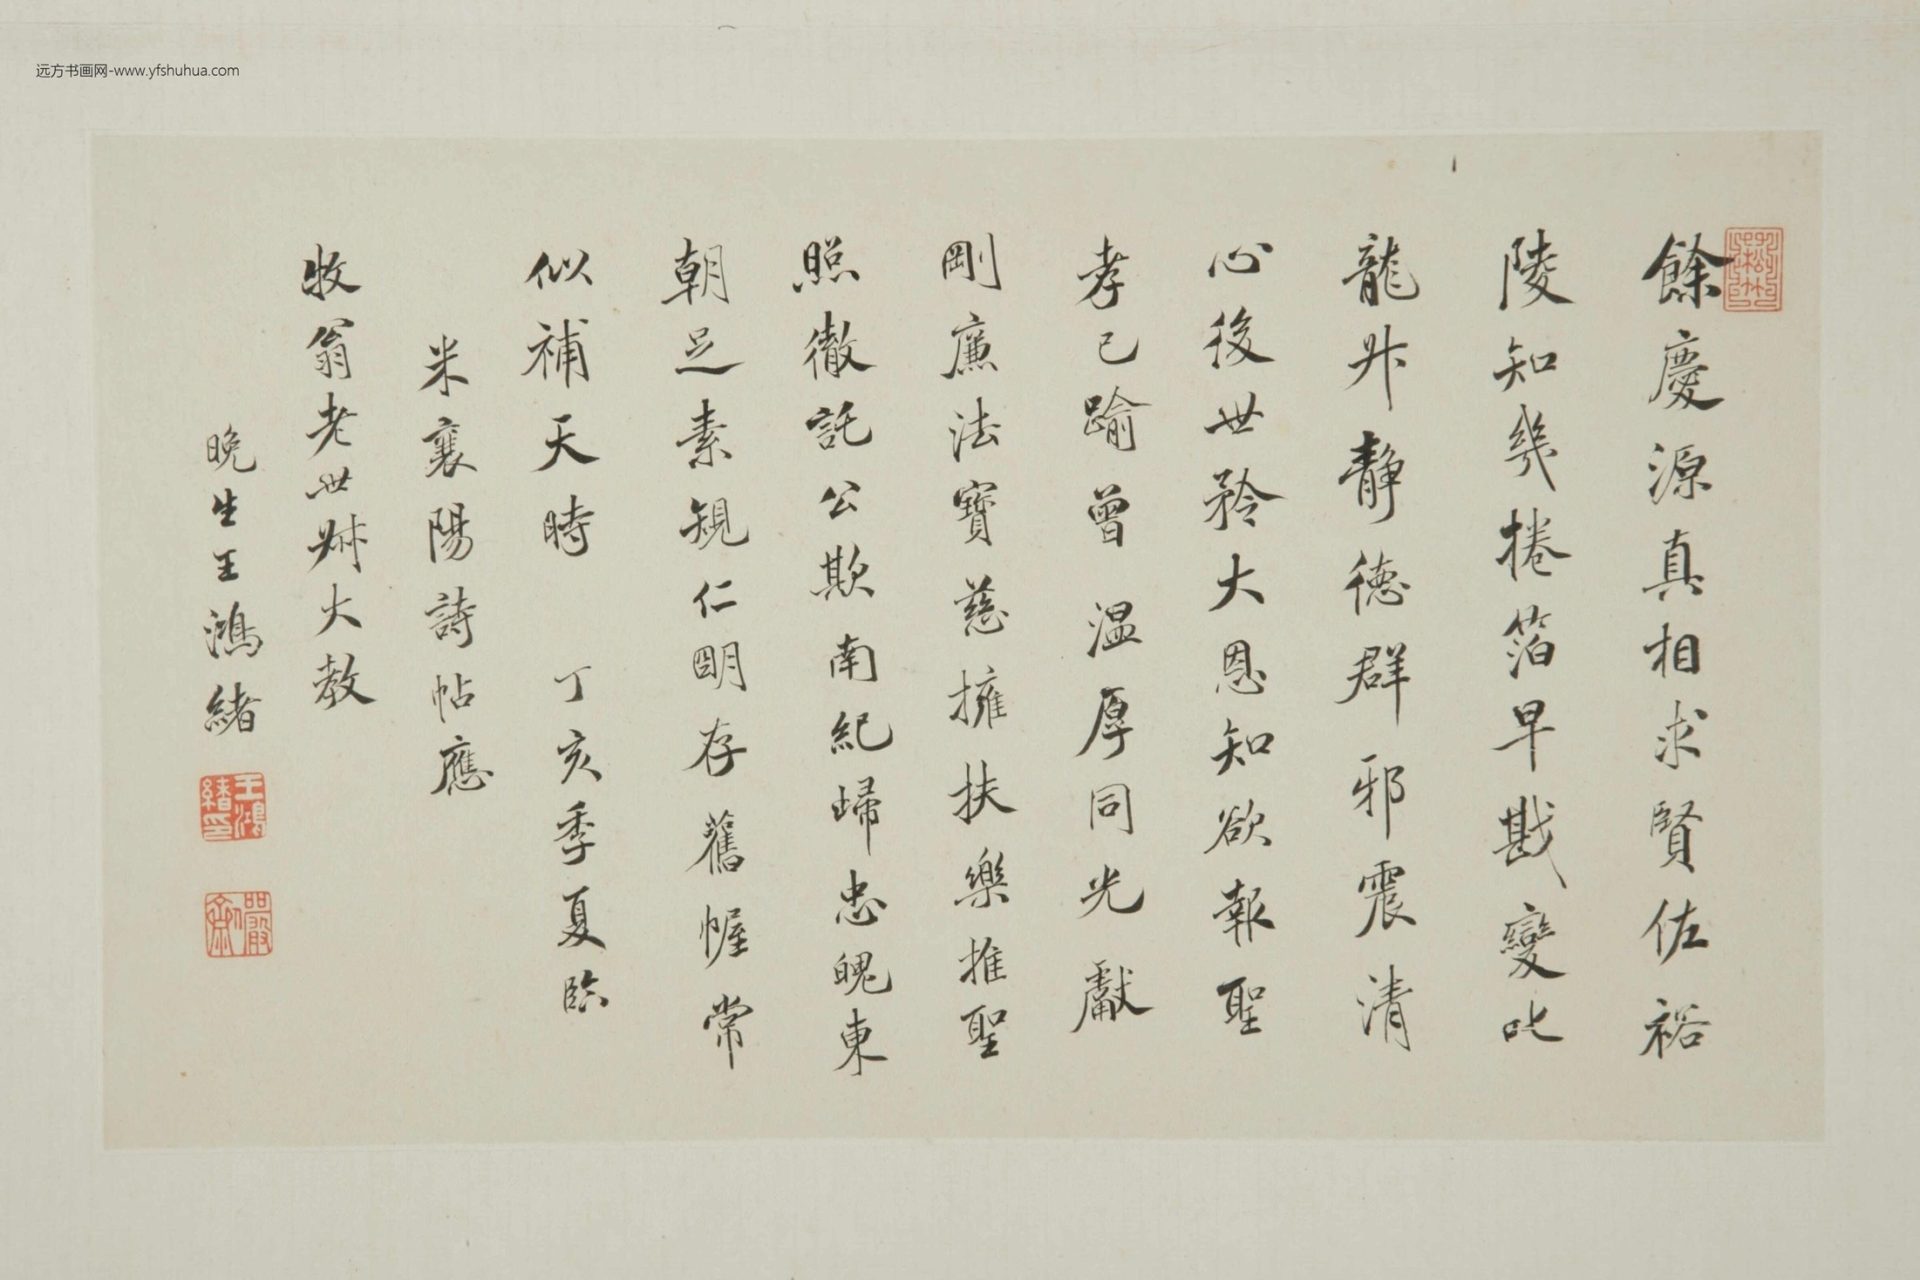 远方书画网-www.yfshuhua.com
餘慶源真相求賢佐裕
陵知幾捲箔早戡變叱
龍升靜德群邪震清
心後世矜大恩知欲報聖
孝已踰曾溫厚同光獻
剛廉法寶慈擁扶樂推聖
照徹託公欺南紀歸忠魄東
朝足素規仁明存舊幄常
似補天時 丁亥季夏臨
米襄陽詩帖應
牧翁老世𠦑大教
晚生王鴻緒
王鴻緒印
儼齋